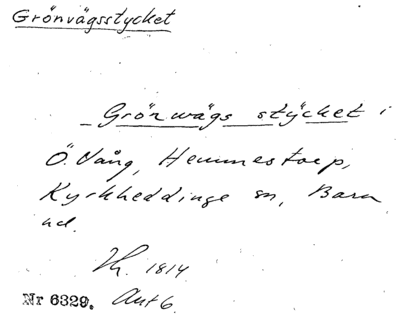 Grönvägsstycket
Grönwägs stÿcket i
Ö. Vång, Hemmestorp,
Kyrkheddinge sn, Bara
hd.
1814
Nr 6329. Akt 6.